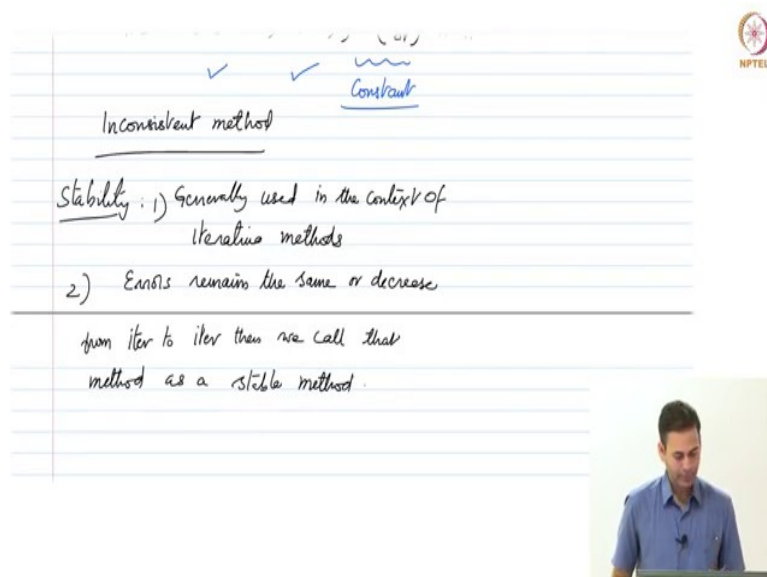 NPTEL
Constant
Inconsistent method
Stability : 1) Generally used in the context of
iterative methods
2) Errors remains the same or decrease
from iter to iter then we call that
method as a stable method.